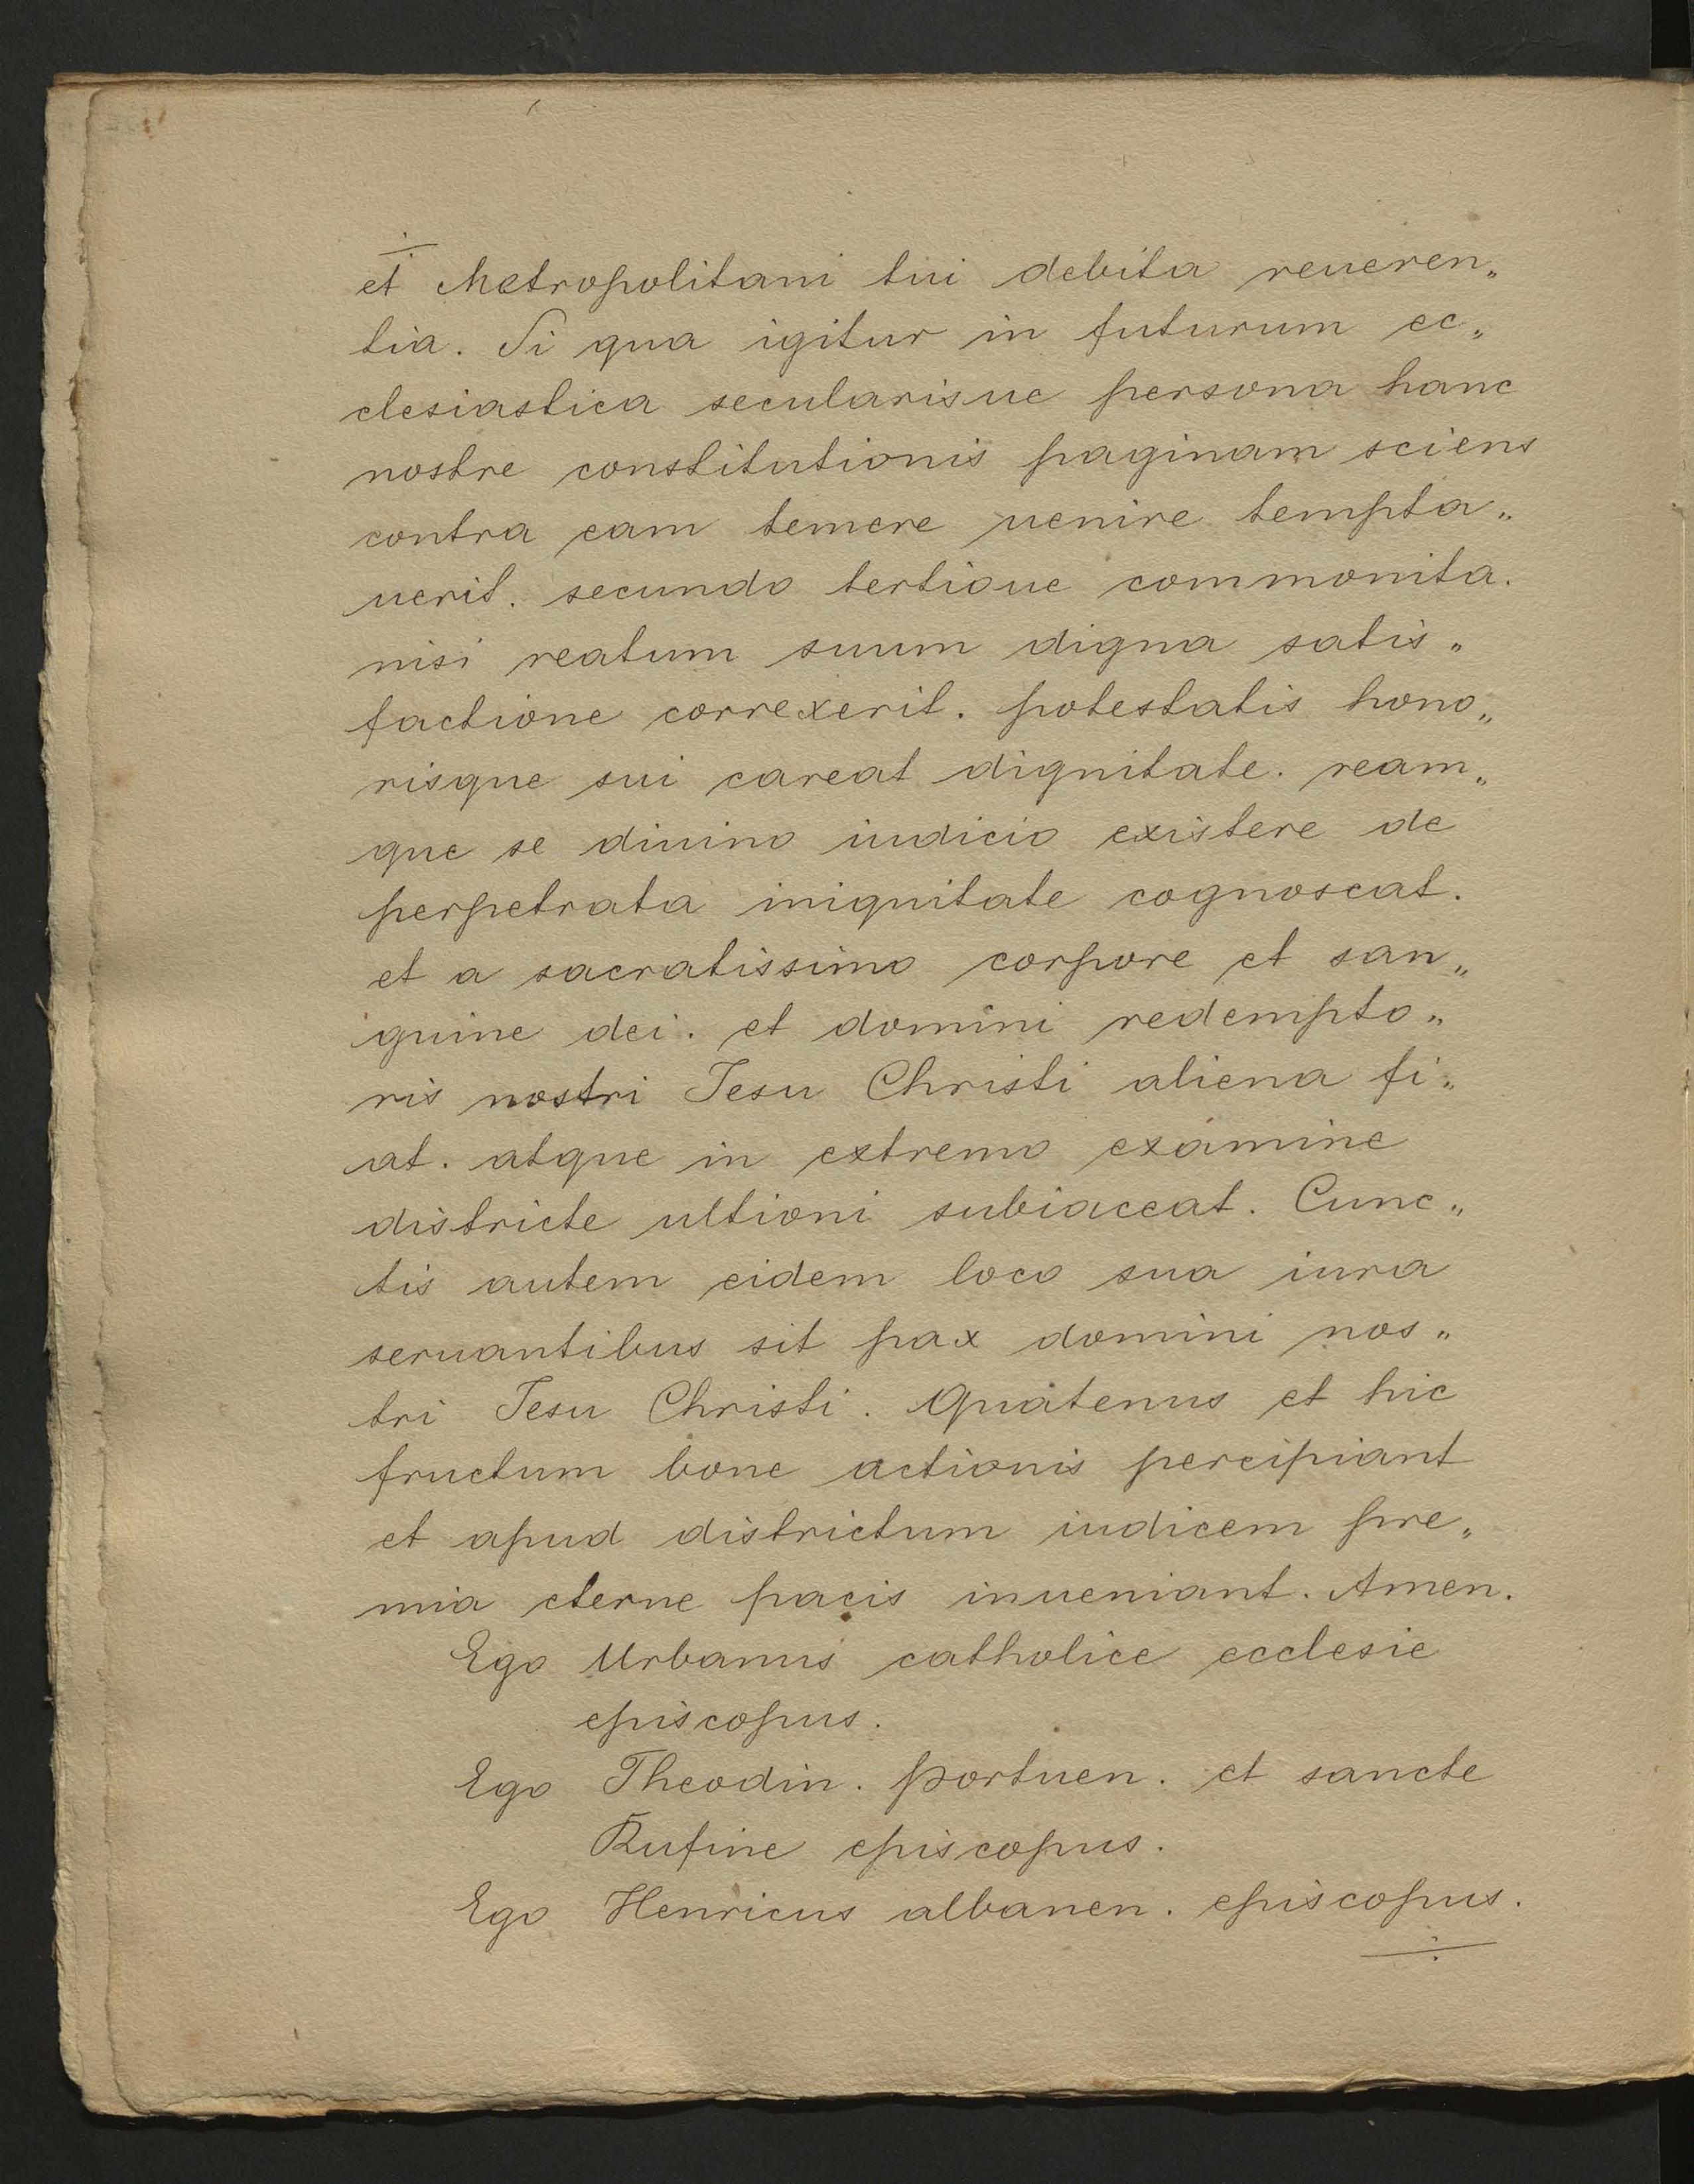 et Metropolitani tui debita reueren„
tia. Si qua igitur in futurum ec„
clesiastica secularisue persona hanc
nostre constitutionis paginam sciens
contra eam temere uenire tempta„
uerit. secundo tertioue commonita.
nisi reatum suum digna satis„
factione correxerit. potestatis hono„
risque sui careat dignitate. ream„
que se diuino iudicio existere de
perpetrata iniquitate cognoscat.
et a sacratissimo corpore et san„
guine dei. et domini redempto„
ris nostri Jesu Christi aliena fi„
at. atque in extremo examine
districte ultioni subiaceat. Cunc„
tis autem eidem loco sua iura
seruantibus sit pax domini nos„
tri Jesu Christi. Quatenus et hic
fructum bone actionis percipiant
et apud districtum iudicem pre„
mia eterne pacis inueniant. Amen.
Ego Urbanus catholice ecclesie
episcopus.
Ego Theodin. portuen. et sancte
Rufine episcopus.
Ego Henricus albanen. episcopus.